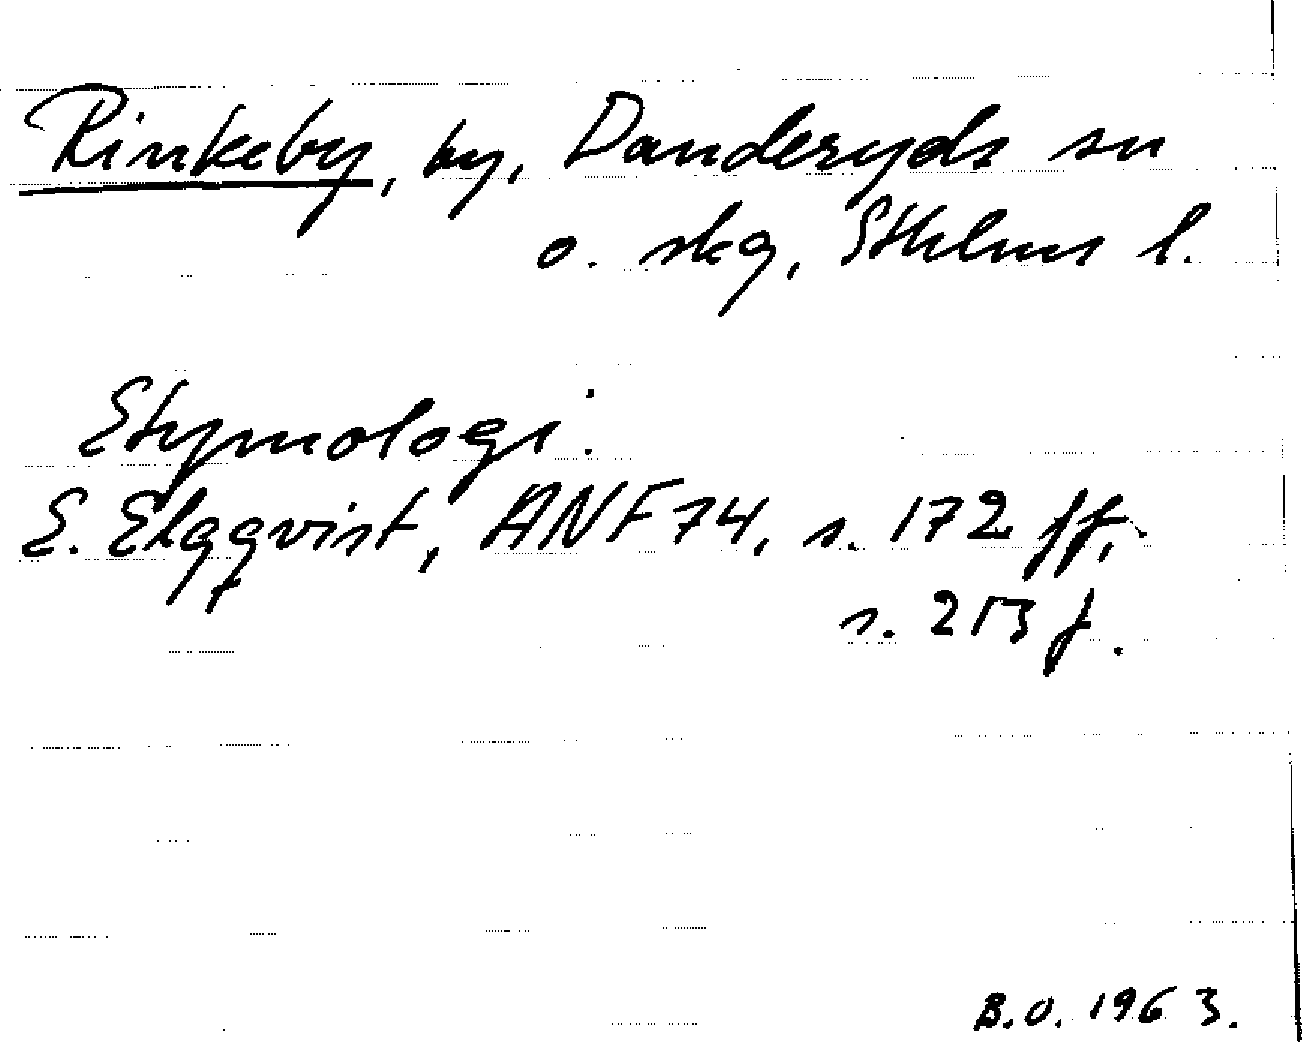 Rinkeby, by, Danderyds sn
o. skg, Sthlms l.
Etymologi.
E. Elgqvist, ANF 74, s. 172 ff,
s. 213 f.
B.O. 1963.